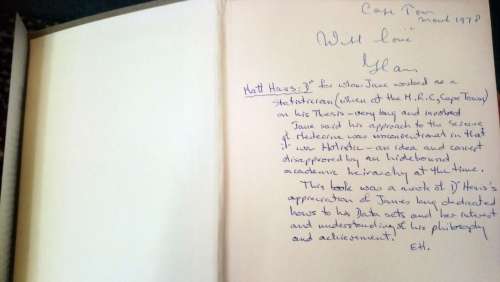 Cape Town
March 1978
With love
Hans
Matt Haws: Dr for whom Jane worked as a
statistician (when at the M.R.C, Cape Town)
on his Thesis - very long and involved
Jane said his approach to the Science
of Medecine was unconventional in that
it was Holistic - an idea and concept
disapproved by an hidebound
academic heirarchy at the time.
This book was a mark of Dr Haws's
appreciation of Janes long dedicated
hours to his Data sets and her interest
and understanding of his philosophy
and achievement.
EH.